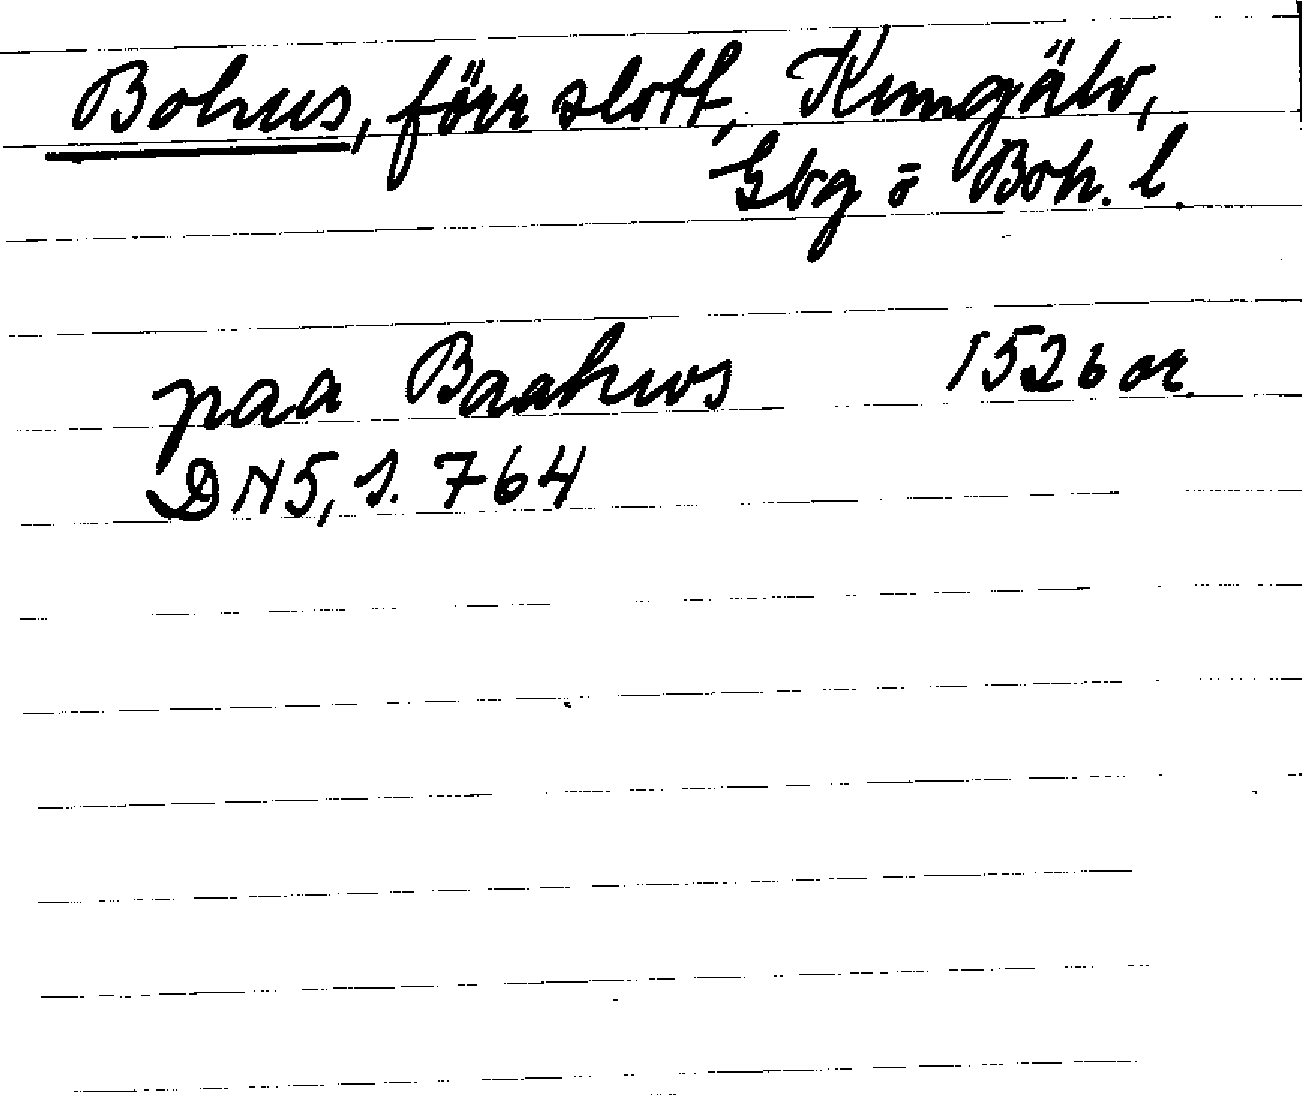 Bohus, förr slott, Kungälv,
Gbg o Boh. l.
paa Baahws 1526 or.
DN 5, s. 764